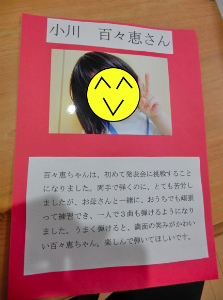 小川 百々恵さん
百々恵ちゃんは、初めて発表会に挑戦すること
になりました。両手で弾くのに、とても苦労し
ましたが、お母さんと一緒に、おうちでも頑張
って練習でき、一人で3曲も弾けるようになり
ました。うまく弾けると、満面の笑みがかわい
い百々恵ちゃん。楽しんで弾いてほしいです。